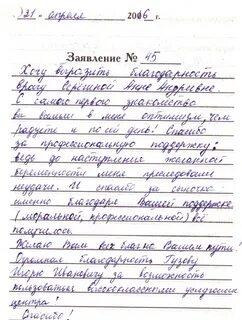 «21» апреля 2006 г.
Заявление № 45
Хочу выразить благодарность
врачу Серёгиной Анне Андреевне.
С самого первого знакомства
вы вселили в меня оптимизм, чем
радуете и по сей день! Спасибо
за профессиональную поддержку:
ведь до наступления желанной
беременности меня преследовали
неудачи. И спасибо за
именно благодаря Вашей поддержке
(моральной, профессиональной) всё
получилось.
Желаю Вам всех благ на Вашем пути!
Огромная благодарность Гузову
Игорю Ивановичу за возможность
пользоваться высококлассными услугами
центра!
Спасибо!